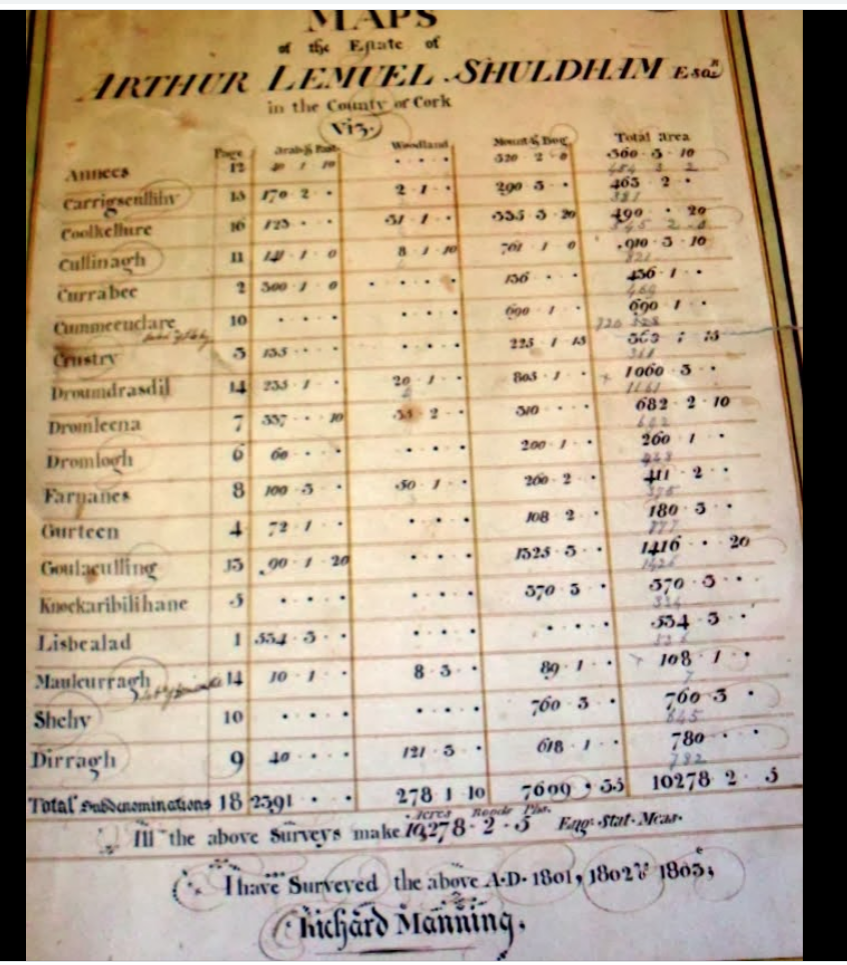 MAPS
of the Estate of
ARTHUR LEMUEL SHULDHAM Esqr
in the County of Cork
Viz.
Page Arab & Past. Woodland Mount & Bog Total Area
Annees 12 40 · 1 · 10 · · · · 320 · 2 · 0 360 · 3 · 10
13 170 · 2 · · 2 · 1 · · 290 · 3 · · 463 · 2 · ·
Coolkellure 16 123 · · · 31 · 1 · · 335 · 3 · 20 490 · · 20
Cullinagh 11 141 · 1 · 0 8 · 1 · 10 761 · 1 · 0 910 · 3 · 10
Currabee 2 300 · 1 · 0 · · · · 136 · · · 436 · 1 · ·
Cummeenclare 10 · · · · · · · · 690 · 1 · · 690 · 1 · ·
Crustry 3 135 · · · · · · · · 225 · 1 · 15 1 · 15
Droumdrasdil 14 235 · 1 · · 20 · 1 · · 805 · 1 · · 1060 · 3 · ·
Dromleena 7 337 · · · 10 35 · 2 · · 310 · · · · 682 · 2 · 10
Dromlogh 6 60 · · · · · · · 200 · 1 · · 260 · 1 · ·
Farnanes 8 100 · 3 · · 50 · 1 · · 260 · 2 · · 411 · 2 · ·
Gurteen 4 72 · 1 · · · · · · 108 · 2 · · 180 · 3 · ·
Goulaculling 13 90 · 1 · 20 · · · · 1325 · 3 · · 1416 · · · 20
Knockaribilihane 5 · · · · · · · · 370 · 3 · · 370 · 3 · ·
Lisbealad 1 334 · 3 · · · · · · · · · · 334 · 3 · ·
Maulcurragh 14 10 · 1 · · 8 · 3 · · 89 · 1 · · 108 · 1 · ·
Shehy 10 · · · · · · · · 760 · 3 · · 760 · 3 · ·
Dirragh 9 40 · · · · 121 · 3 · · 618 · 1 · · 780 · · ·
Total Subdenominations 18 2391 · · 278 · 1 · 10 7609 · · 35 10278 · 2 · 5
Acres Roods Phs.
All the above Surveys make 10,278 · 2 · 5 Eng. Stat. Meas.
I have Surveyed the above A.D. 1801, 1802 & 1803;
Richard Manning.